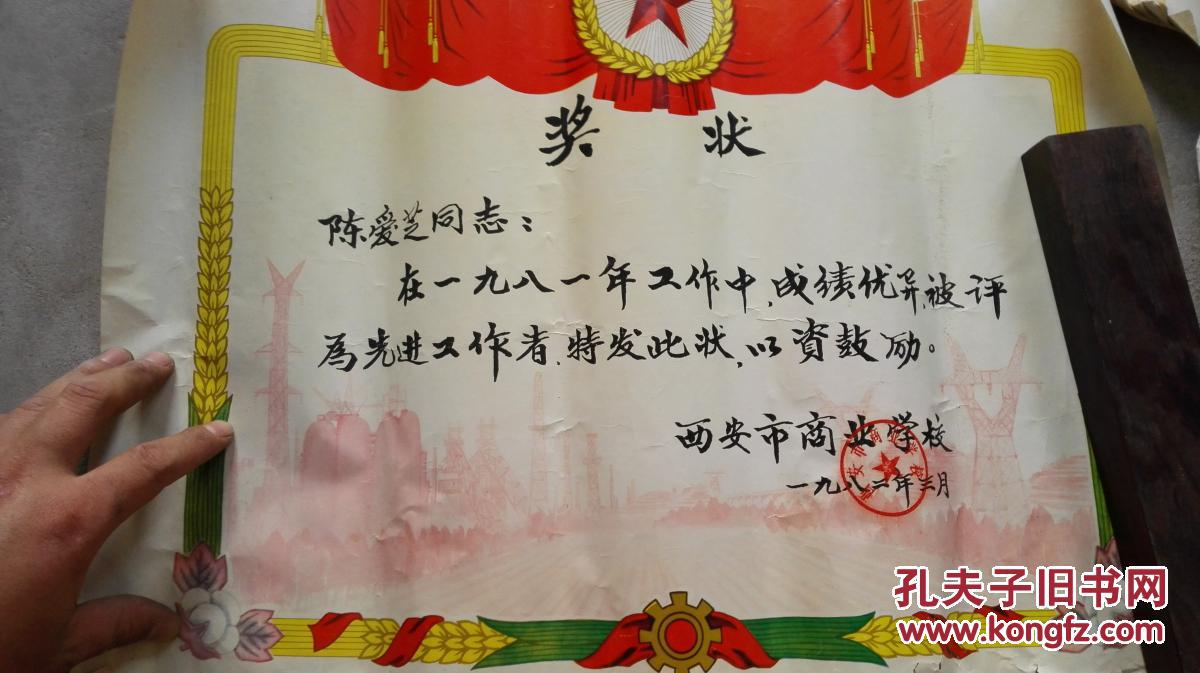 奖状
陈爱芝同志：
在一九八一年工作中，成绩优异，被评
为先进工作者，特发此状，以资鼓励。
西安市商业学校
一九八二年三月
孔夫子旧书网
www.kongfz.com